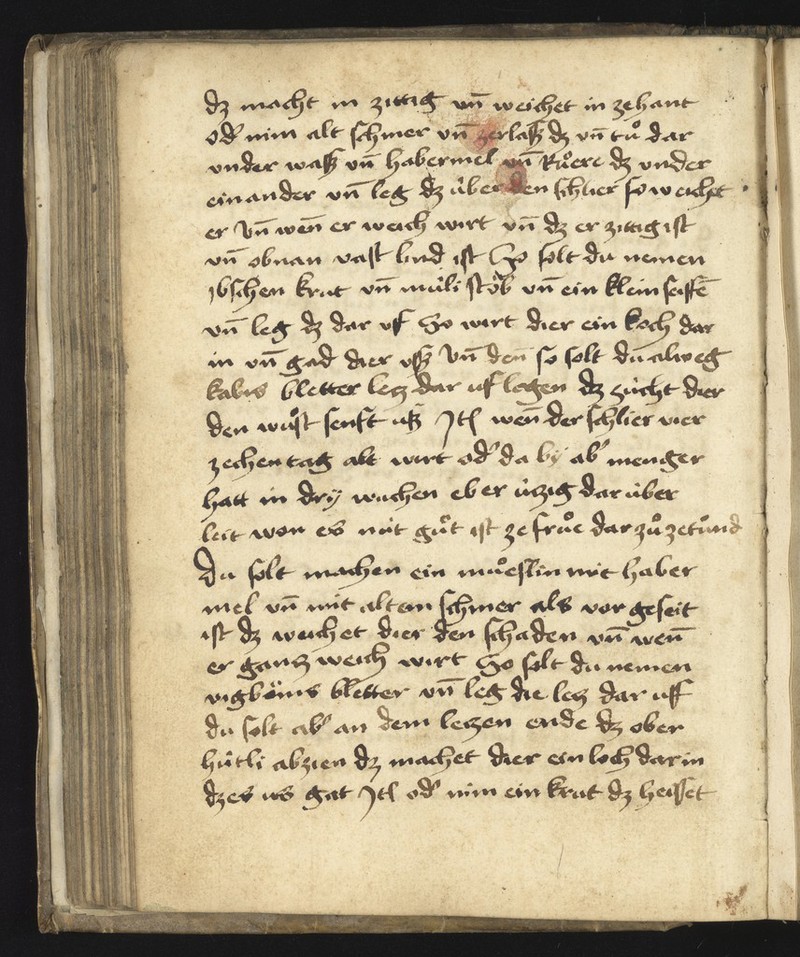 dz macht in zittig vn̄ weichet in zehant
od' nim alt schmer vn̄ zerlasß dz vn̄ tůͦ dar
vnder wasß vn̄ habermel vn̄ Ruͦere dz vnder
ein ander vn̄ leg dz über den schlier so weichet
er Vn̄ wen̄ er weich wirt vn̄ dz er zittig ist
vn̄ obnan vast lind ist So solt du nemen
jbschen krut vn̄ müli stöb vn̄ ein klein seiffē
vn̄ leg dz dar vf So wirt dier ein loch dar
in vn̄ gad dier vsß Vn̄ den̄ so solt du alweg
kabis bletter letz dar uf legen dz zücht dier
den wuͦst senft usß Jtē wen̄ der schlier vier
zechen tag alt wirt od' da bÿ ab' menger
hatt in drÿ wuchen eb er ützig dar über
leit won es nüt guͦt ist ze fruͦe dar zuͦ ze tuͦnd
Du solt machen ein muͦeslin mit haber
mel vn̄ mit altem schmer als vor geseit
ist dz weichet dier den schaden vn̄ wen̄
er gantz weich wirt So solt du nemen
vigböms bletter vn̄ leg die letz dar uff
du solt ab' an dem letzen ende dz ober
hütli abzien dz machet dier ein loch dar in
dz es us gat Jtē od' nim ein krut dz heisset